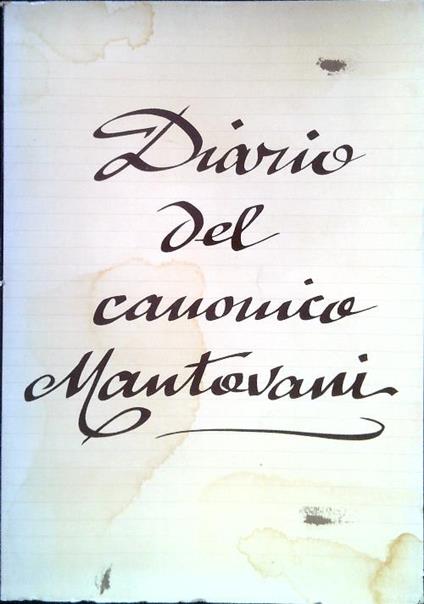 Diario
del
canonico
Mantovani